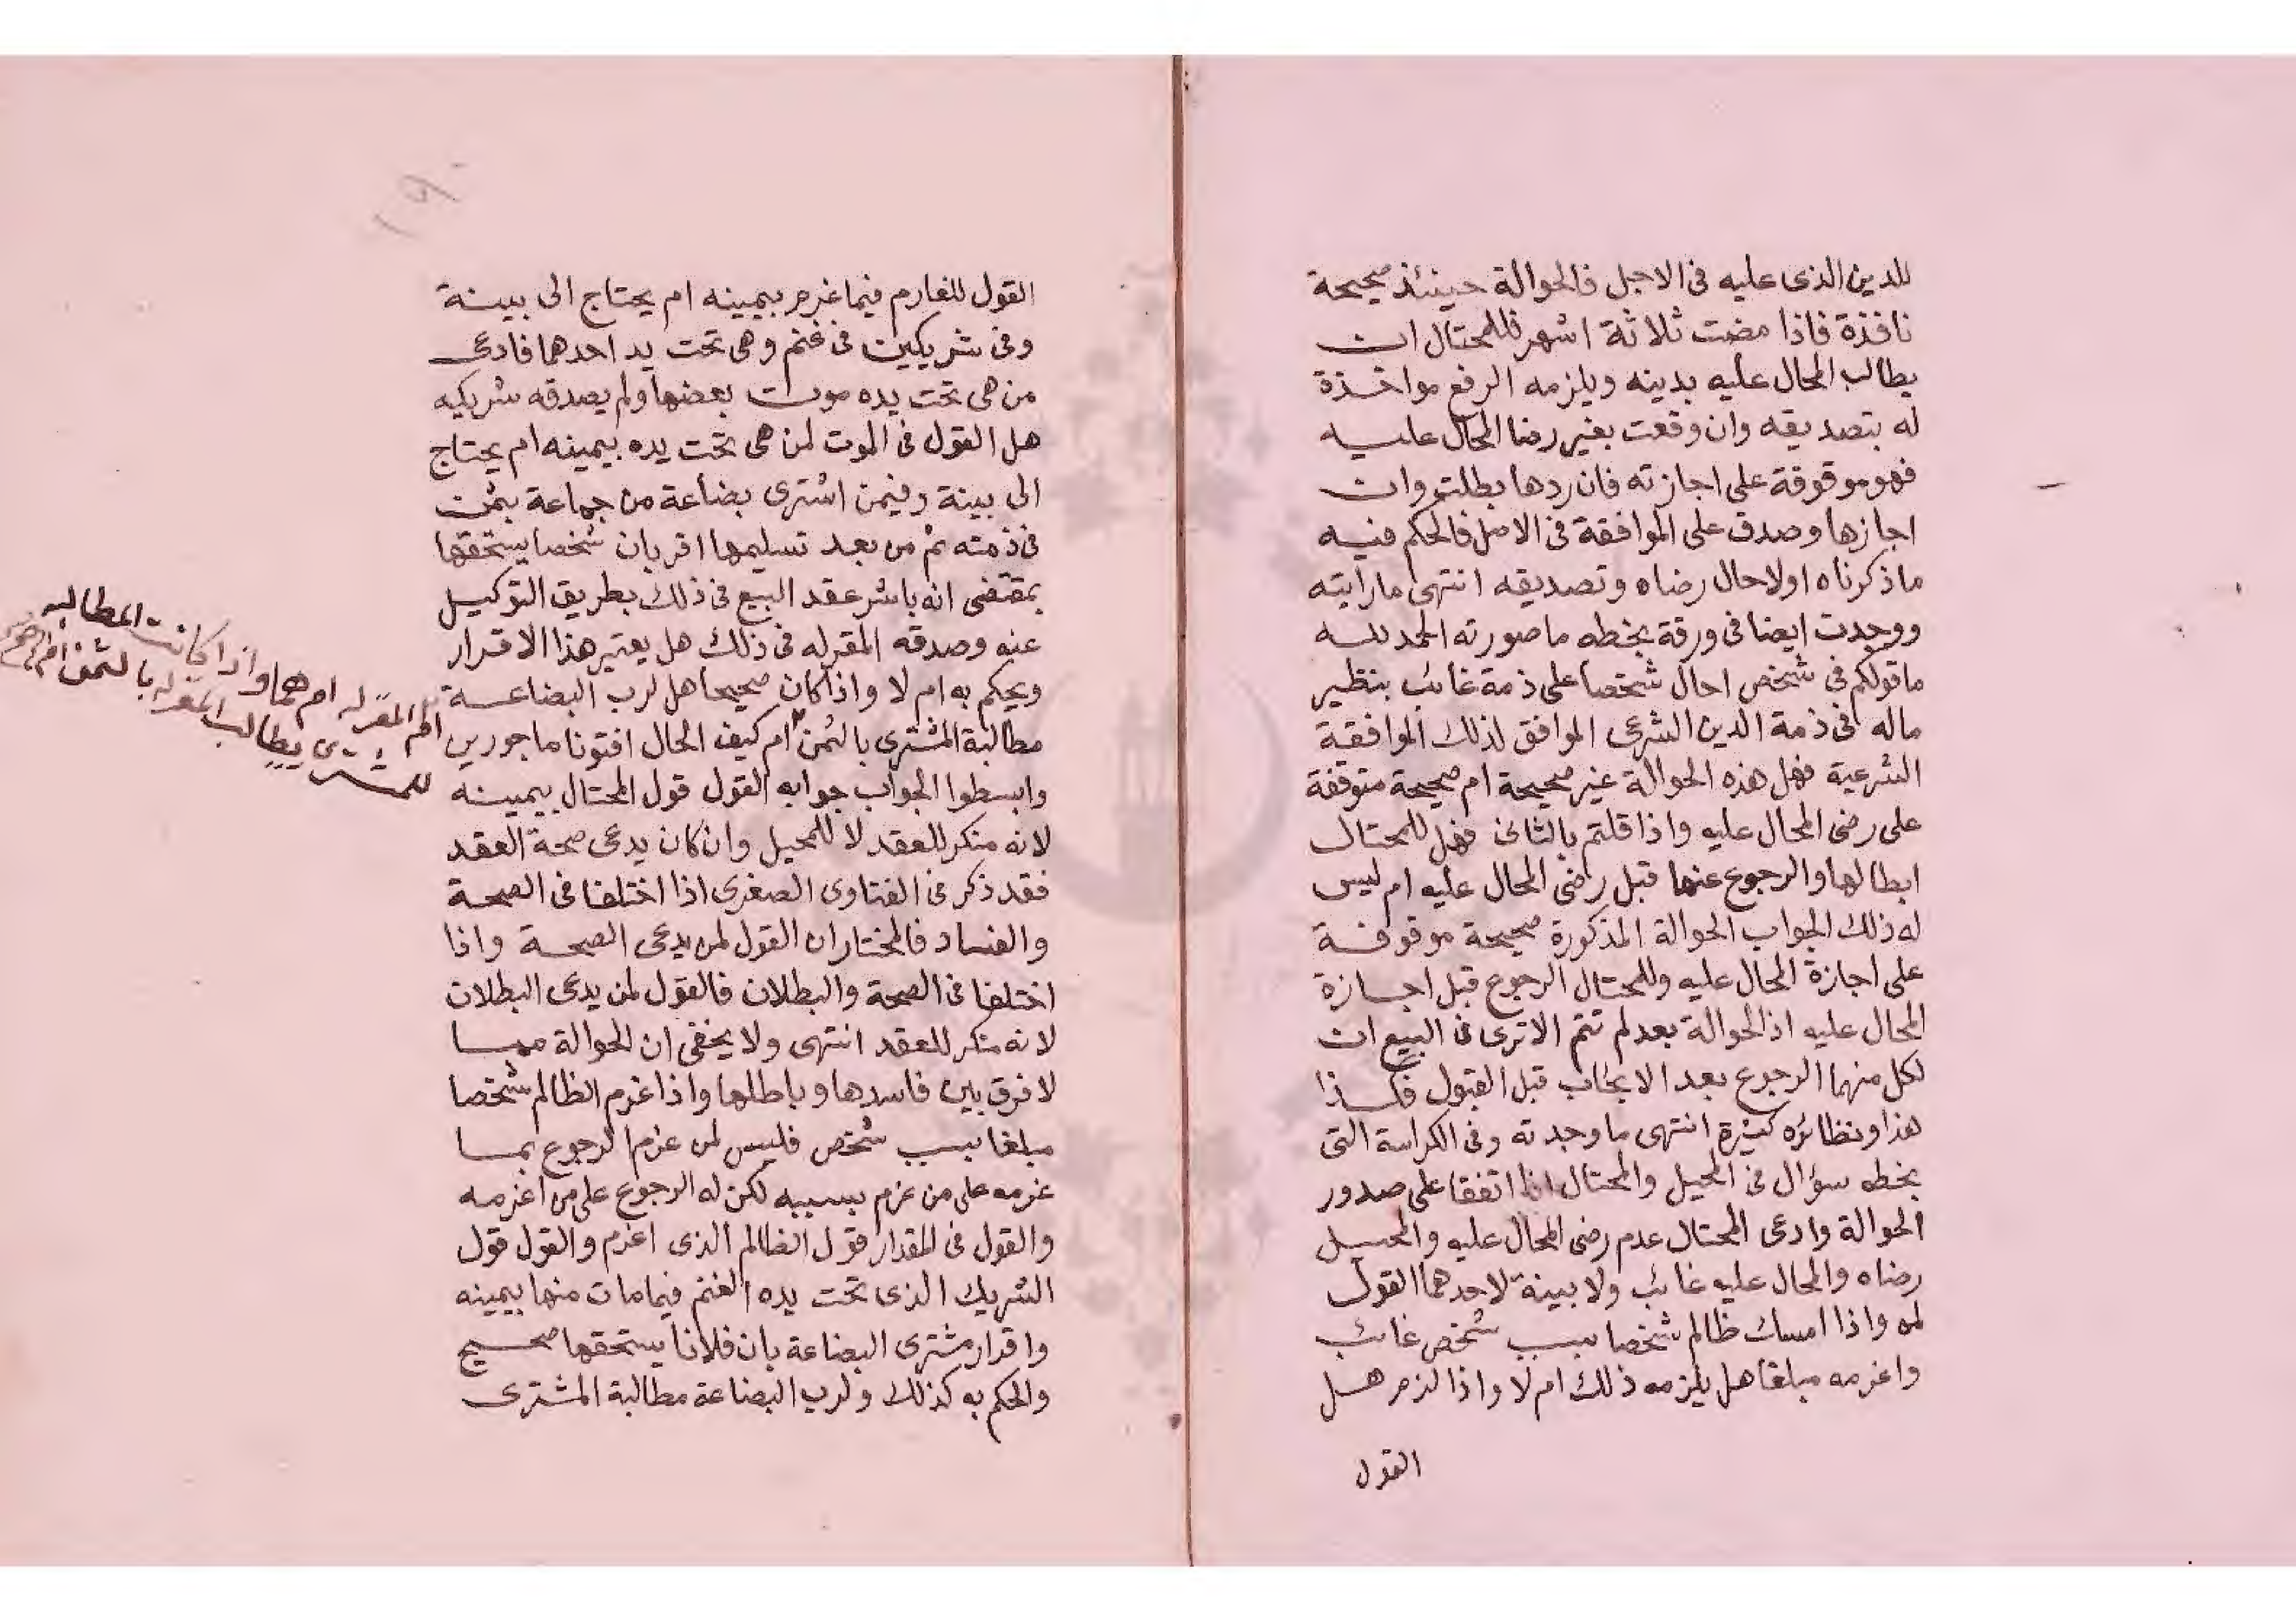 للدين الذى عليه فى الاجل فالحوالة حينئذ صحيحة
نافذة فاذا مضت ثلاثة اشهر فللمحتال ان
يطالب المحال عليه بدينه ويلزمه الرفع مواخذة
له بتصديقه وان وقعت بغير رضا المحال عليه
فهو موقوفة على اجازته فان ردها بطلت وان
اجازها وصدق على الموافقة فى الاصل فالحكم فيه
ما ذكرناه اولا حال رضاه وتصديقه انتهى ما رايته
ووجدت ايضا فى ورقة بخطه ما صورته الحمد لله
ما قولكم فى شخص احال شخصا على ذمة غائب بنظير
ماله فى ذمة الدين الشرعى الموافق لذلك الموافقة
الشرعية فهل هذه الحوالة غير صحيحة ام صحيحة متوقفة
على رضى المحال عليه واذا قلتم بالثانى فهل للمحتال
ابطالها والرجوع عنها قبل رضى المحال عليه ام ليس
له ذلك الجواب الحوالة المذكورة صحيحة موقوفة
على اجازة المحال عليه وللمحتال الرجوع قبل اجازة
المحال عليه اذ الحوالة بعد لم تتم الا ترى فى البيع ان
لكل منهما الرجوع بعد الايجاب قبل القبول فكذا
هذا ونظائره كثيرة انتهى ما وجدته وفى الكراسة التى
بخطه سؤال فى المحيل والمحتال اذا اتفقا على صدور
الحوالة وادعى المحتال عدم رضى المحال عليه والمحيل
رضاه والمحال عليه غائب ولا بينة لاحدهما القول
لمن واذا امسك ظالم شخصا بسبب شخص غائب
واغرمه مبلغا هل يلزمه ذلك ام لا واذا لزم هل
القول
١٩٠
القول للغارم فيما غرم بيمينه ام يحتاج الى بينة
وفى شريكين فى غنم وهى تحت يد احدهما فادعى
من هى تحت يده موت بعضها ولم يصدقه شريكه
هل القول فى الموت لمن هى تحت يده بيمينه ام يحتاج
الى بينة وفيمن اشترى بضاعة من جماعة بثمن
فى ذمته ثم من بعد تسليمها اقر بان شخصا يستحقها
بمقتضى انه باشر عقد البيع فى ذلك بطريق التوكيل
عنه وصدقه المقر له فى ذلك هل يعتبر هذا الاقرار
ويحكم به ام لا واذا كان صحيحا هل لرب البضاعة
مطالبة المشترى بالثمن ام كيف الحال افتونا ماجورين
ام المقر له ام هما واذا كانت المطالبه
للمشترى يطالب المقر له بالثمن ام
وابسطوا الجواب جوابه القول قول المحتال بيمينه
لانه منكر للعقد لا للمحيل وان كان يدعى صحة العقد
فقد ذكر فى الفتاوى الصغرى اذا اختلفا فى الصحة
والفساد فالمختار ان القول لمن يدعى الصحة واذا
اختلفا فى الصحة والبطلان فالقول لمن يدعى البطلان
لانه منكر للعقد انتهى ولا يخفى ان الحوالة مما
لا فرق بين فاسدها وباطلها واذا غرم الظالم شخصا
مبلغا بسبب شخص فليس لمن غرم الرجوع بما
غرمه على من غرم بسببه لكن له الرجوع على من اغرمه
والقول فى المقدار قول الظالم الذى اغرم والقول قول
الشريك الذى تحت يده الغنم فيما مات منها بيمينه
واقرار مشترى البضاعة بان فلانا يستحقها صحيح
والحكم به كذلك ولرب البضاعة مطالبة المشترى